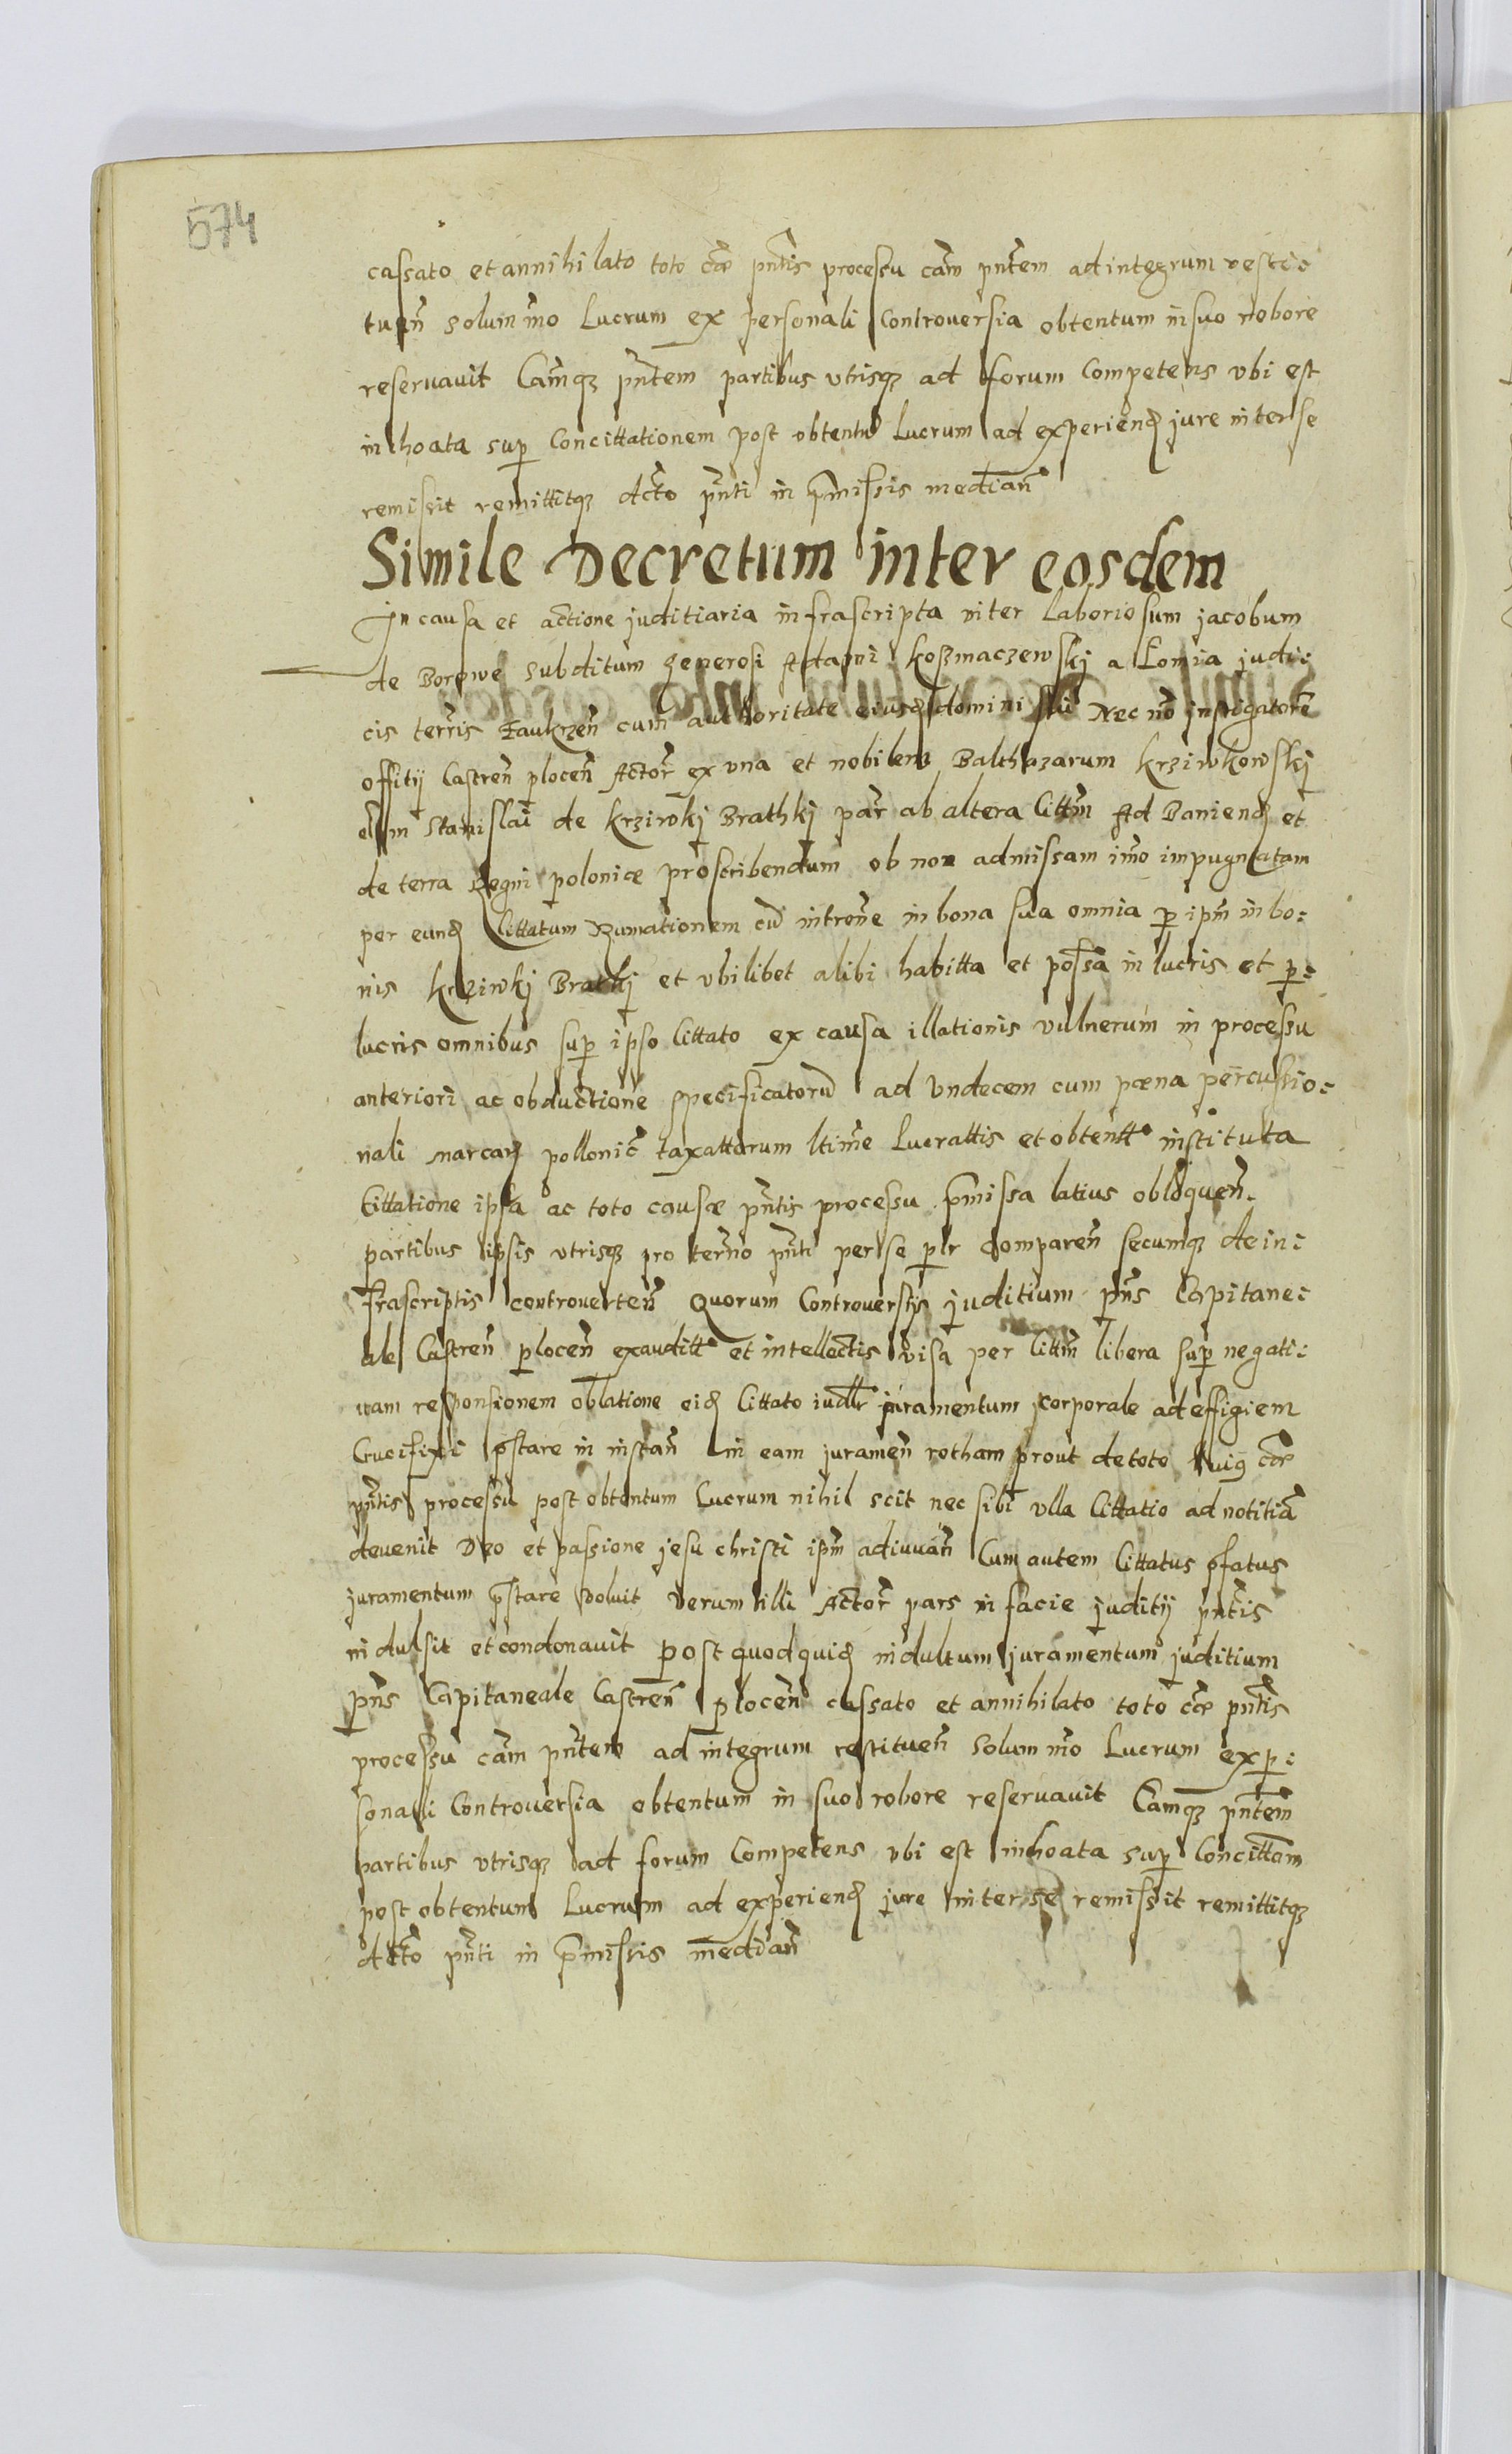 574
cassato et annihilato toto cãe pñtis processu cãm pñtem ad integrum resti:
tueñ solum m̃o Lucrum ex personali Controversia obtentum in suo robore
reservavit Cãmq₃ pñtem partibus vtrisq₃ ad forum Competens vbi est
inhoata sup Concittationem post obtentũ Lucrum ad experienđ jure inter se
remissit remittitq₃ dcto pñti in p̃missis mediañ
Simile Decretum inter eosdem
In causa et actione juditiaria infrascripta inter Laboriosum jacobum
de Borowe subditum generosi Adami Koszmaczewskj a Lomia judi:
cis terris Zaukrzeñ cum authoritate eiusđ domini sui Nec nõ instigatorẽ
offitij Castreñ ploceñ Actor̃ ex vna et nobilem Balthazarum Krziwkowskj
olim Stanislai de Krziwkj Brathkj par̃ ab altera Citt̃m Ad Banienđ et
de terra Regni polonice proscribendum ob non admissam im̃o impugnatam
per eunđ Cittatum Rumationem cũ introm̃e in bona sua omnia p ip̃m in bo:
nis Krziwkj Bratkj et vbilibet alibi habitta et possã in lucris et p:
lucris omnibus sup ipso Cittato ex causa illationis vulnerum in processu
anteriori ac obductione specificatorũ ad vndecem cum pœna percussio:
nali marcarđ pollonic̃ taxattorum ltim̃e Lucrattis et obtentt instituta
Cittatione ipsa ac toto causæ pñtis processu p̃missa latius obloqueñ.
partibus ipsis vtrisq₃ pro term̃o pñti per se plr̃ Compareñ secumq₃ de in:
frascriptis controverteñ Quorum Controversijs juditium pñs Capitane:
ale Castreñ ploceñ exauditt et intellectis visa per Citt̃m libera sup negati:
uam responsionem oblatione eiđ Cittato juramentum corporale ad effigiem
Crucifixi p̃stare in instañ in eam jurameñ rotham prout de toto cãe
pñtis processu post obtentum Lucrum nihil scit nec sibi vlla Cittatio ad notitiã
devenit Deo et passione jesu christi ip̃m adiuuañ Cum autem Cittatus p̃fatus
juramentum p̃stare voluit Verum illi Actor̃ pars in facie juditij pñtis
indulsit et condonauit post quod quiđ indultum juramentum juditium
pñs Capitaneale Castreñ ploceñ cassato et annihilato toto cãe pñtis
processu cãm pñtem ad integrum restitueñ Solum m̃o Lucrum ex p:
sonali Controversia obtentum in suo robore reservauit Cãmq₃ pñtem
partibus vtrisq₃ ad forum Competens vbi est inhoata sup Concitt̃am
post obtentum Lucrum ad experienđ jure inter se remissit remittitq₃
dcto pñti in p̃missis mediañ